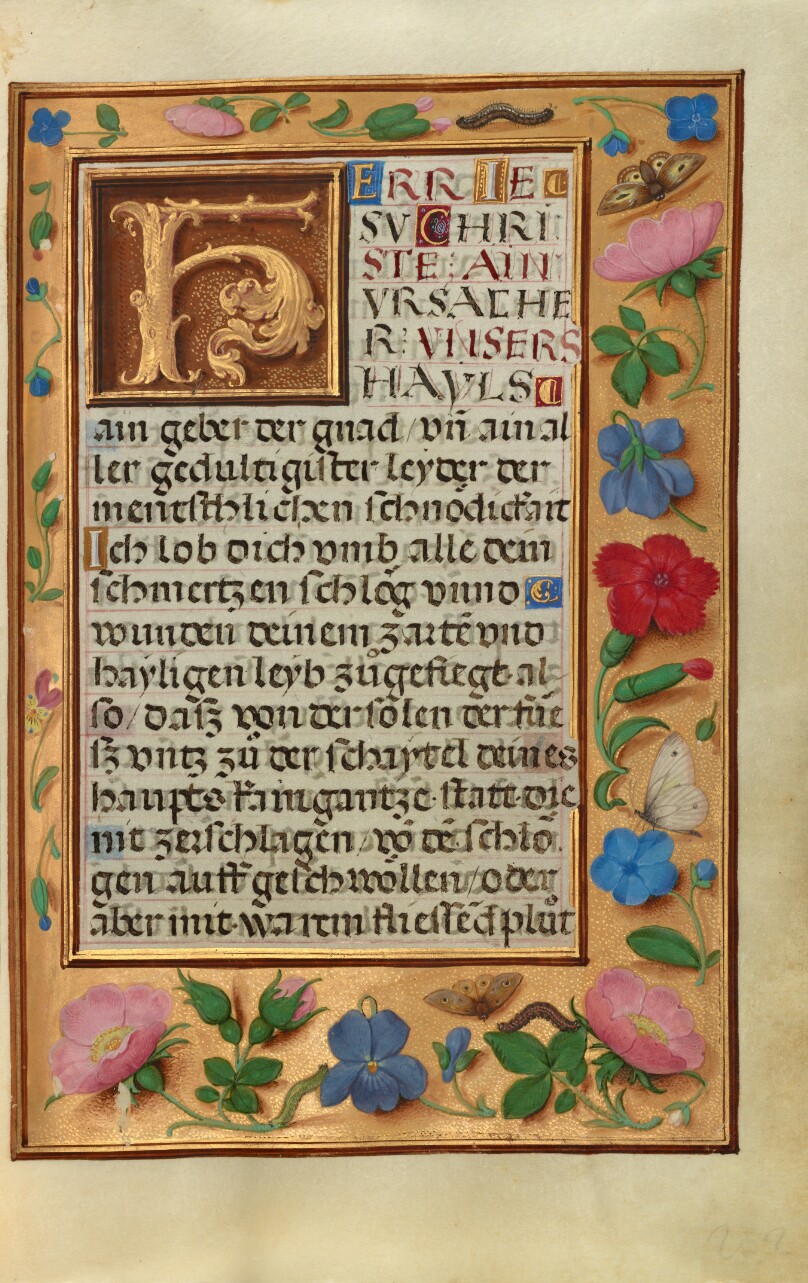 HERR IE
SV CHRI
STE: AIN
VRSACHE
R: VNSERS
HAYLS
ain geber der gnad/ vn̄ ain al
ler gedultigister leyder der
mentschlichen schnödickait
Ich lob dich vmb alle dein
schmertzen schlög vnnd
wunden deinem zartē vnd
hayligen leyb zůgefiegt. al
so/ dasz von der solen der füe
sz vntz zů der schaytel deines
haupts kain gantze. statt. die
nit zerschlagen/ vō dē schlö
gen auff geschwollen/ oder
aber mit. warm fliessēd plůt